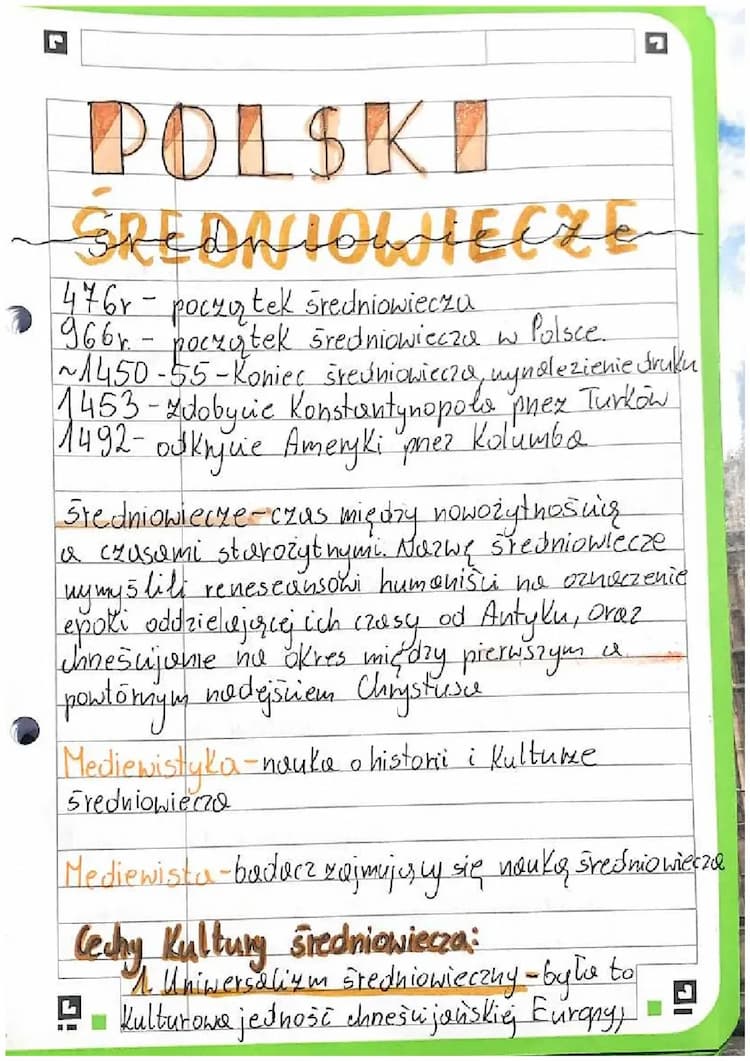 POLSKI
ŚREDNIOWIECZE
średniowiecze
476r - początek średniowiecza
966r. - początek średniowiecza w Polsce.
~1450-55 - Koniec średniowiecza, wynalezienie druku
1453 - zdobycie Konstantynopola przez Turków
1492 - odkrycie Ameryki przez Kolumba
Średniowiecze - czas między nowożytnością
a czasami starożytnymi. Nazwę średniowiecze
wymyślili renesansowi humaniści na oznaczenie
epoki oddzielającej ich czasy od Antyku, oraz
chrześcijanie na okres między pierwszym a
powtórnym nadejściem Chrystusa
Mediewistyka - nauka o historii i kulturze
średniowiecza
Mediewista - badacz zajmujący się nauką średniowiecza
Cechy Kultury średniowiecza:
1. Uniwersalizm średniowieczny - była to
kulturowa jedność chrześcijańskiej Europy,